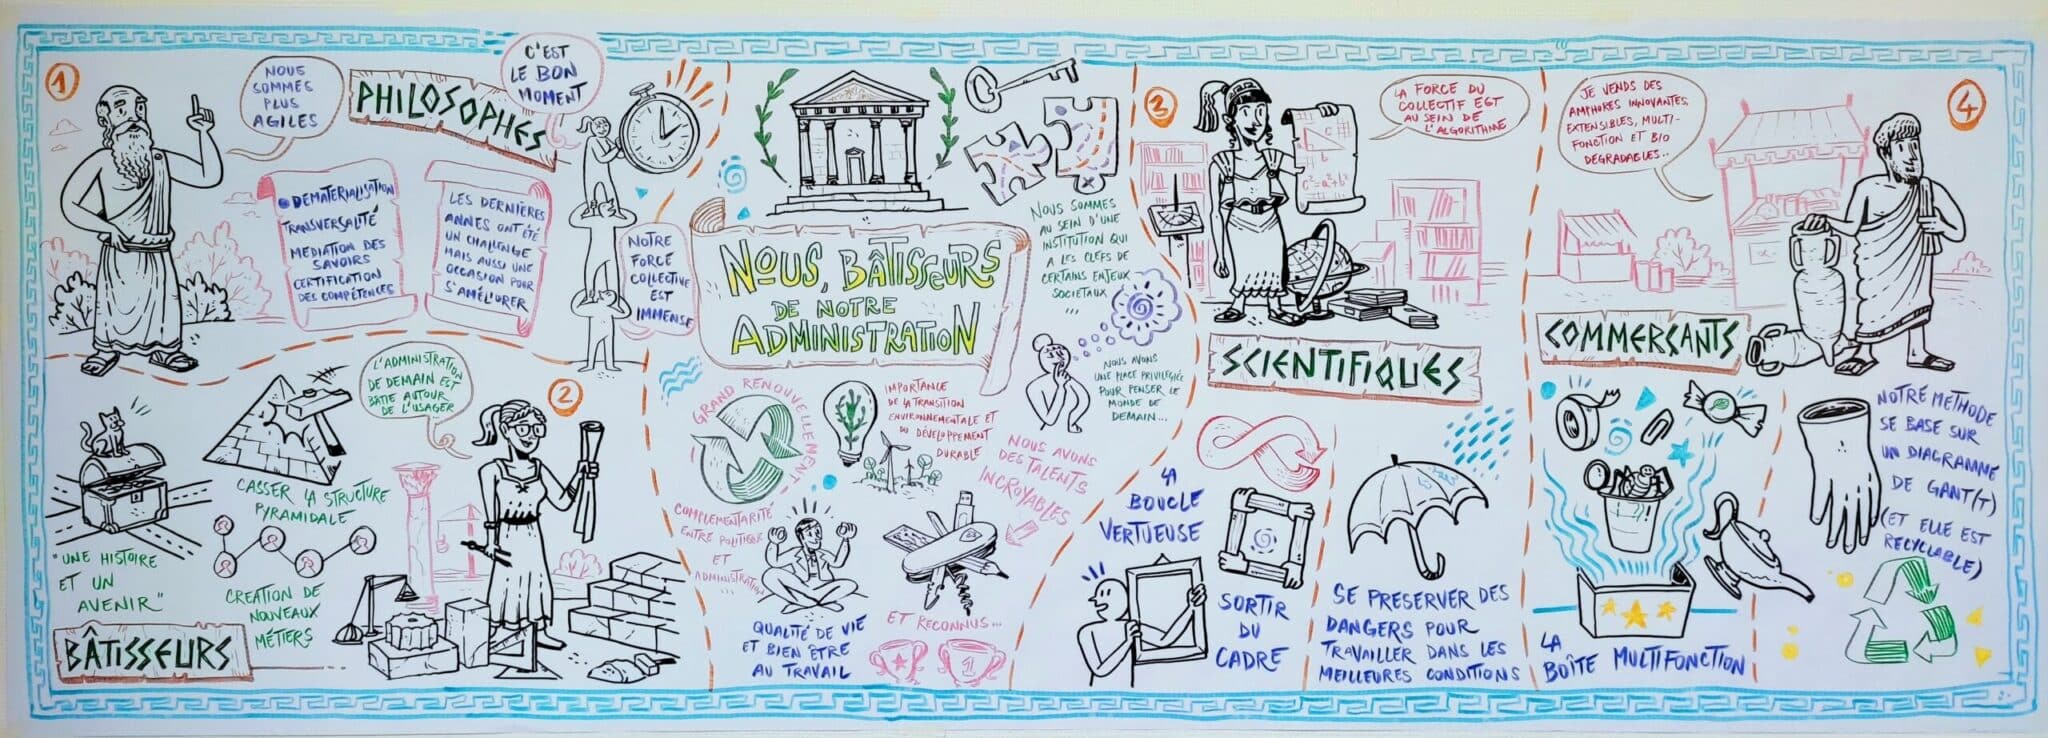 1
NOUS
SOMMES
PLUS
AGILES
PHILOSOPHES
C'EST
LE BON
MOMENT
DEMATERIALISATION
TRANSVERSALITÉ
MEDIATION DES
SAVOIRS
CERTIFICATION
DES COMPÉTENCES
LES DERNIÈRES
ANNÉES ONT ÉTÉ
UN CHALLENGE
MAIS AUSSI UNE
OCCASION POUR
S'AMÉLIORER
NOTRE
FORCE
COLLECTIVE
EST
IMMENSE
2
L'ADMINISTRATION
DE DEMAIN EST
BATIE AUTOUR
DE L'USAGER
CASSER LA STRUCTURE
PYRAMIDALE
"UNE HISTOIRE
ET UN
AVENIR"
CREATION DE
NOUVEAUX
MÉTIERS
BÂTISSEURS
NOUS, BÂTISSEURS
DE NOTRE
ADMINISTRATION
NOUS SOMMES
AU SEIN D'UNE
INSTITUTION QUI
A LES CLEFS DE
CERTAINS ENJEUX
SOCIETAUX
...
NOUS AVONS
UNE PLACE PRIVILEGIÉE
POUR PENSER LE
MONDE DE
DEMAIN...
GRAND RENOUVELLEMENT
IMPORTANCE
DE LA TRANSITION
ENVIRONNEMENTALE ET
DU DÉVELOPPEMENT
DURABLE
NOUS AVONS
DES TALENTS
INCROYABLES
COMPLEMENTARITÉ
ENTRE POLITIQUE
ET
ADMINISTRATION
...
QUALITÉ DE VIE
ET BIEN ÊTRE
AU TRAVAIL
ET RECONNUS...
1
3
LA FORCE DU
COLLECTIF EST
AU SEIN DE
L'ALGORITHME
c
b
c²=a²+b²
SCIENTIFIQUES
LA
BOUCLE
VERTUEUSE
SORTIR
DU
CADRE
SE PRESERVER DES
DANGERS POUR
TRAVAILLER DANS LES
MEILLEURES CONDITIONS
4
JE VENDS DES
AMPHORES INNOVANTES,
EXTENSIBLES, MULTI-
FONCTION ET BIO
DEGRADABLES..
COMMERÇANTS
LA
BOÎTE MULTIFONCTION
NOTRE METHODE
SE BASE SUR
UN DIAGRAMME
DE GANT(T)
(ET ELLE EST
RECYCLABLE)